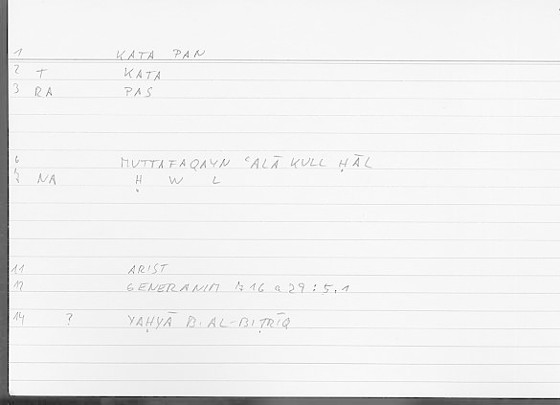 1 KATA PAN
2 T KATA
3 RA PAS
6 MUTTAFAQAYN ʿALĀ KULL ḤĀL
7 NA Ḥ W L
11 ARIST
12 GENERANIM 716 a 29 : 5,1
14 ? YAḤYĀ B. AL-BIṬRĪQ